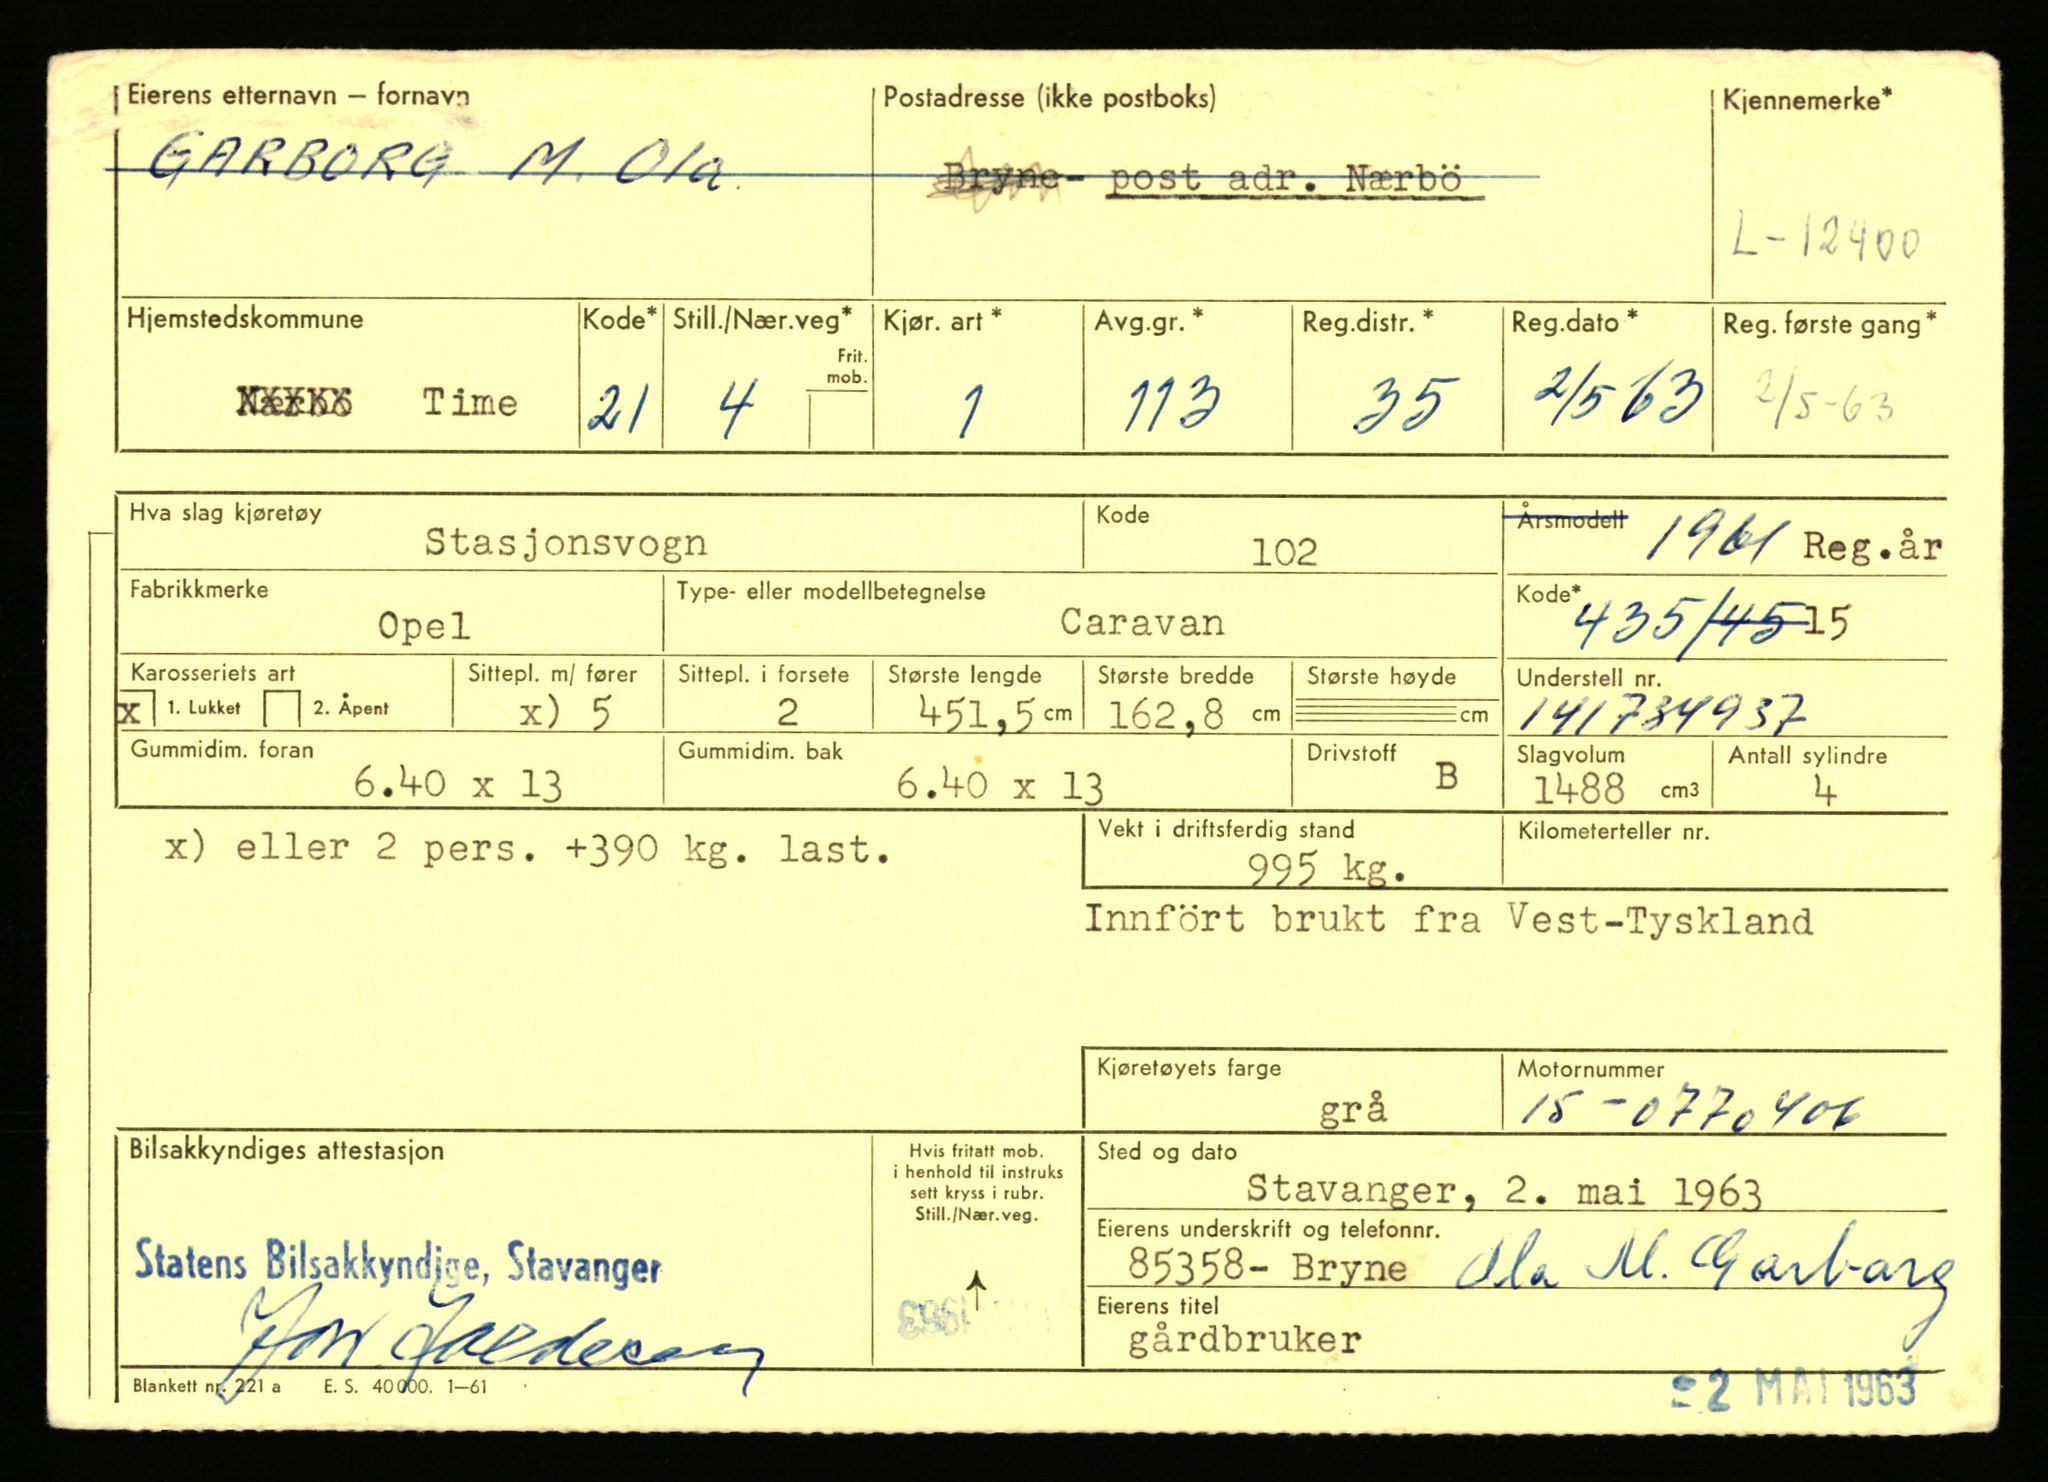 Eierens etternavn – fornavn
Postadresse (ikke postboks)
Kjennemerke*
GARBORG M. Ola
Bryne- post adr. Nærbö
L-12400
Hjemstedskommune
Kode*
Still./Nær.veg*
Frit. mob.
Kjør. art *
Avg.gr. *
Reg.distr. *
Reg.dato *
Reg. første gang *
Nærbö Time
21
4
1
113
35
2/5 63
2/5-63
Hva slag kjøretøy
Stasjonsvogn
Kode
102
Årsmodell
1961 Reg.år
Fabrikkmerke
Opel
Type- eller modellbetegnelse
Caravan
Kode*
435/45 15
Karosseriets art
x 1. Lukket 2. Åpent
Sittepl. m/ fører
x) 5
Sittepl. i forsete
2
Største lengde
451,5 cm
Største bredde
162,8 cm
Største høyde
cm
Understell nr.
141734937
Gummidim. foran
6.40 x 13
Gummidim. bak
6.40 x 13
Drivstoff
B
Slagvolum
1488 cm3
Antall sylindre
4
x) eller 2 pers. +390 kg. last.
Vekt i driftsferdig stand
995 kg.
Kilometerteller nr.
Innfört brukt fra Vest-Tyskland
Kjøretøyets farge
grå
Motornummer
15-0770406
Bilsakkyndiges attestasjon
Statens Bilsakkyndige, Stavanger
Hvis fritatt mob.
i henhold til instruks
sett kryss i rubr.
Still./Nær.veg.
1963
Sted og dato
Stavanger, 2. mai 1963
Eierens underskrift og telefonnr.
85358- Bryne Ola M. Garborg
Eierens titel
gårdbruker
Blankett nr. 221 a E. S. 40 000. 1–61
-2 MAI 1963